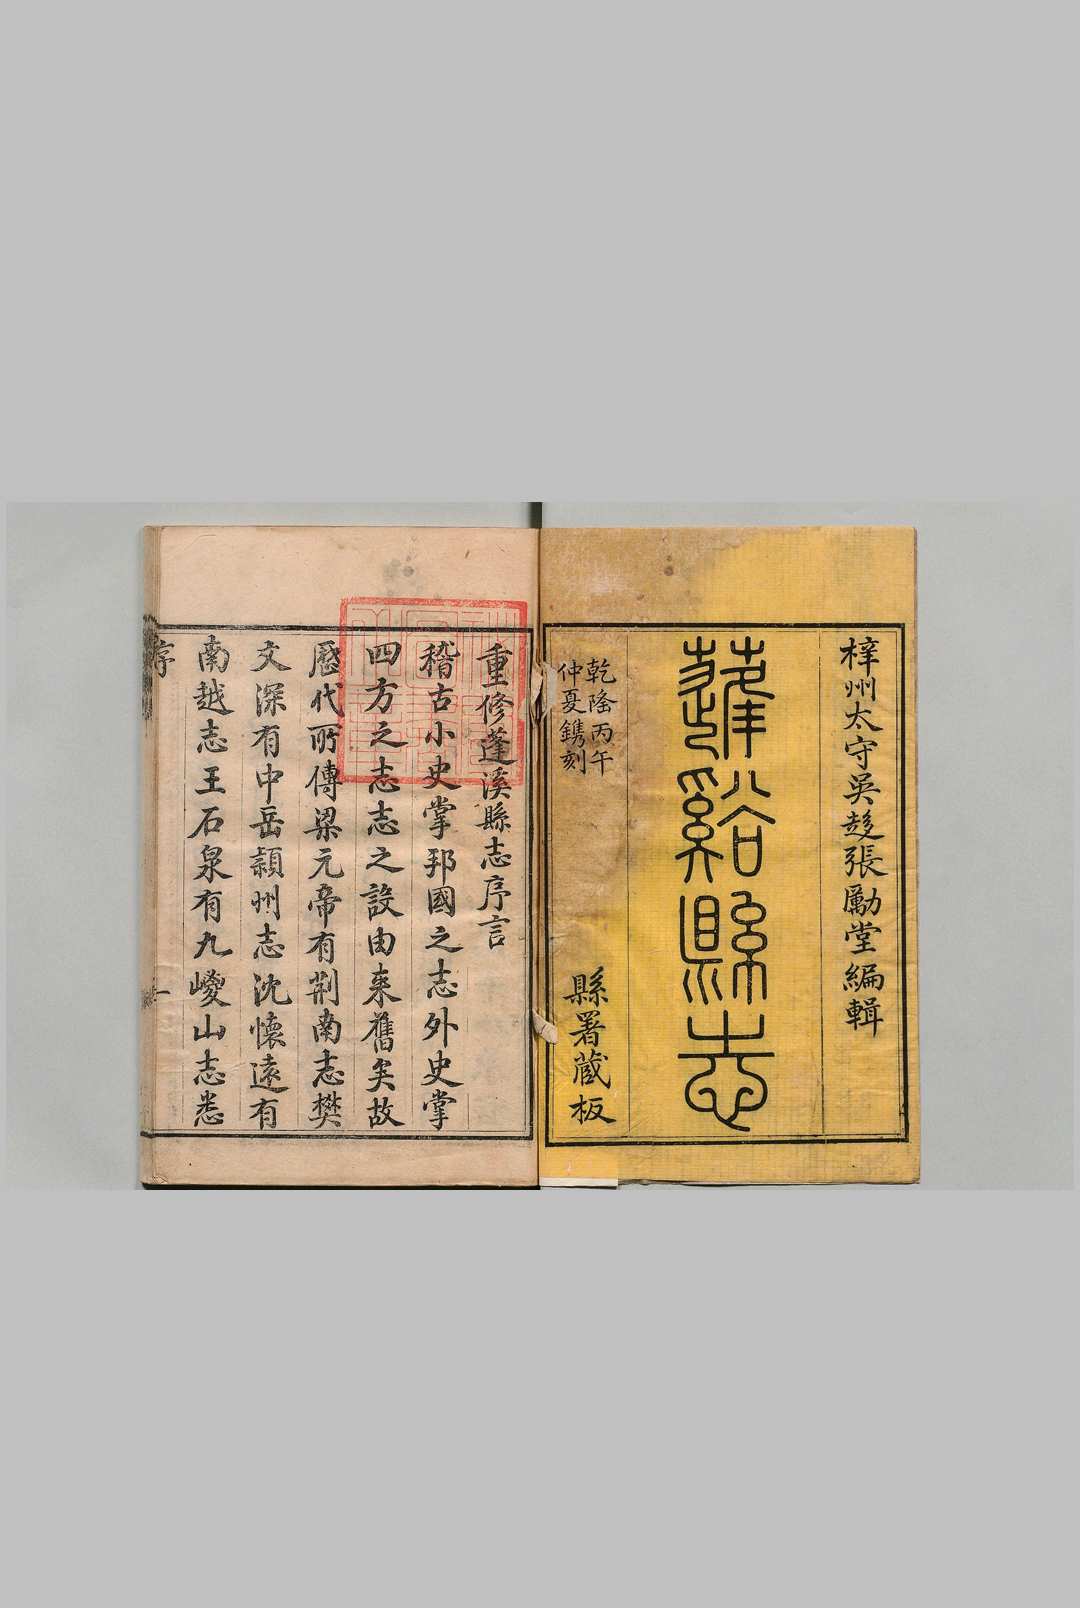 梓州太守吳趍張勵堂編輯
蓬谿縣志
乾隆丙午
仲夏鐫刻
縣署藏板
重修蓬溪縣志序言
稽古小史掌邦國之志外史掌
四方之志志之設由來舊矣故
歷代所傳梁元帝有荆南志樊
文深有中岳潁州志沈懷遠有
南越志王石泉有九嵕山志悉
序
一